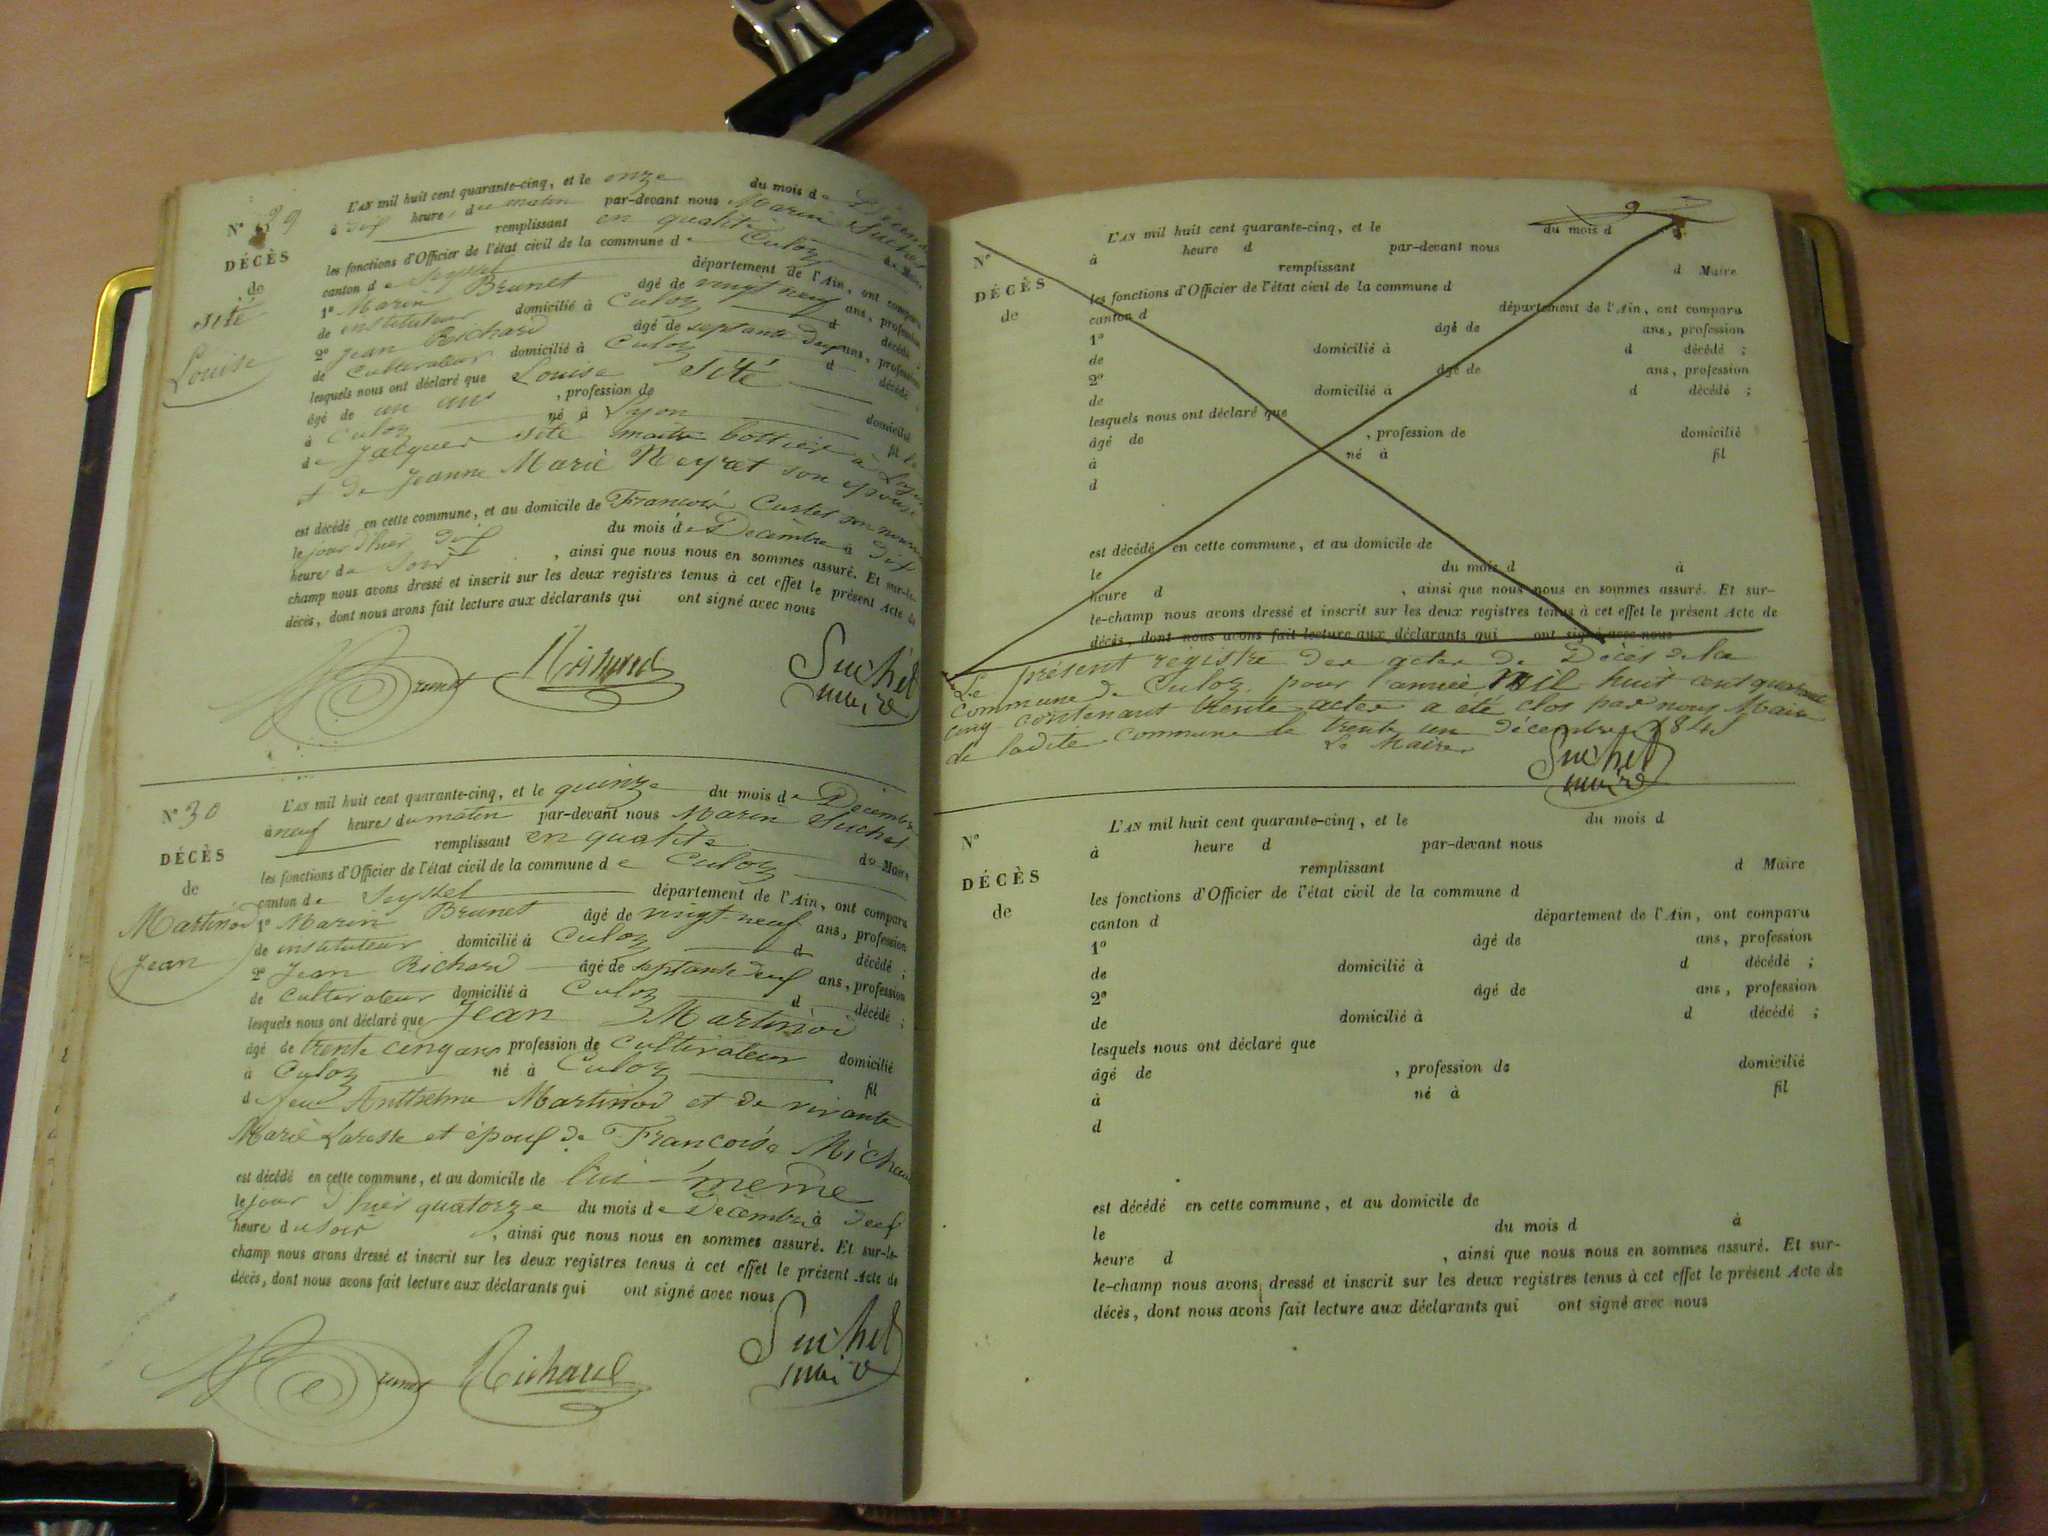 N° 29
DÉCÈS
de
Sité
Louise
L'AN mil huit cent quarante-cinq, et le onze du mois de Décembre
à dix heures du matin par-devant nous Marin Suchet
remplissant en qualité de Maire
les fonctions d'Officier de l'état civil de la commune de Culoz
canton de Seyssel département de l'Ain, ont comparu
1° Marin Brunet âgé de vingt neuf ans, profession
de instituteur domicilié à Culoz d décédé ;
2° Jean Richard âgé de septante deux ans, profession
de Cultivateur domicilié à Culoz d décédé ;
lesquels nous ont déclaré que Louise Sité
âgé de un ans , profession de domicilié
à Culoz né à Lyon fil le
de Jacques Sité maitre bottier à Lyon
et de Jeanne Marie Neyret son épouse
est décédé en cette commune, et au domicile de François Curtet son
le jour d'hier dix du mois de Décembre à dix
heures du Soir , ainsi que nous nous en sommes assuré. Et sur-le-
champ nous avons dressé et inscrit sur les deux registres tenus à cet effet le présent Acte de
décès, dont nous avons fait lecture aux déclarants qui ont signé avec nous
Brunet Richard Suchet
maire
N° 30
DÉCÈS
de
Martinod
Jean
L'AN mil huit cent quarante-cinq, et le quinze du mois de Décembre
à neuf heures du matin par-devant nous Marin Suchet
remplissant en qualité de Maire
les fonctions d'Officier de l'état civil de la commune de Culoz
canton de Seyssel département de l'Ain, ont comparu
1° Marin Brunet âgé de vingt-neuf ans, profession
de instituteur domicilié à Culoz d décédé ;
2° Jean Richard âgé de septante deux ans, profession
de Cultivateur domicilié à Culoz d décédé ;
lesquels nous ont déclaré que Jean Martinod
âgé de trente cinq ans profession de Cultivateur domicilié
à Culoz né à Culoz fil
de feu Anthelme Martinod et de vivante
Marie et époux de Françoise Michaud
est décédé en cette commune, et au domicile de lui-même
le jour d'hier quatorze du mois de Décembre à
heure du soir , ainsi que nous nous en sommes assuré. Et sur-le-
champ nous avons dressé et inscrit sur les deux registres tenus à cet effet le présent Acte de
décès, dont nous avons fait lecture aux déclarants qui ont signé avec nous
Brunet Richard Suchet
maire
N°
DÉCÈS
de
L'AN mil huit cent quarante-cinq, et le du mois d
à heure d par-devant nous
remplissant d Maire
les fonctions d'Officier de l'état civil de la commune d
canton d département de l'Ain, ont comparu
1° âgé de ans, profession
de domicilié à d décédé ;
2° âgé de ans, profession
de domicilié à d décédé ;
lesquels nous ont déclaré que
âgé de , profession de domicilié
à né à fil
d
est décédé en cette commune, et au domicile de
le du mois d à
heure d , ainsi que nous nous en sommes assuré. Et sur-
le-champ nous avons dressé et inscrit sur les deux registres tenus à cet effet le présent Acte de
décès, dont nous avons fait lecture aux déclarants qui ont signé avec nous
Le présent registre des actes de Décès de la
commune de Culoz pour l'année Mil huit cent quarante
cinq contenant trente actes a été clos par nous Maire
de ladite commune le trente un décembre 1845
Le Maire
Suchet
maire
N°
DÉCÈS
de
L'AN mil huit cent quarante-cinq, et le du mois d
à heure d par-devant nous
remplissant d Maire
les fonctions d'Officier de l'état civil de la commune d
canton d département de l'Ain, ont comparu
1° âgé de ans, profession
de domicilié à d décédé ;
2° âgé de ans, profession
de domicilié à d décédé ;
lesquels nous ont déclaré que
âgé de , profession de domicilié
à né à fil
d
est décédé en cette commune, et au domicile de
le du mois d à
heure d , ainsi que nous nous en sommes assuré. Et sur-
le-champ nous avons dressé et inscrit sur les deux registres tenus à cet effet le présent Acte de
décès, dont nous avons fait lecture aux déclarants qui ont signé avec nous